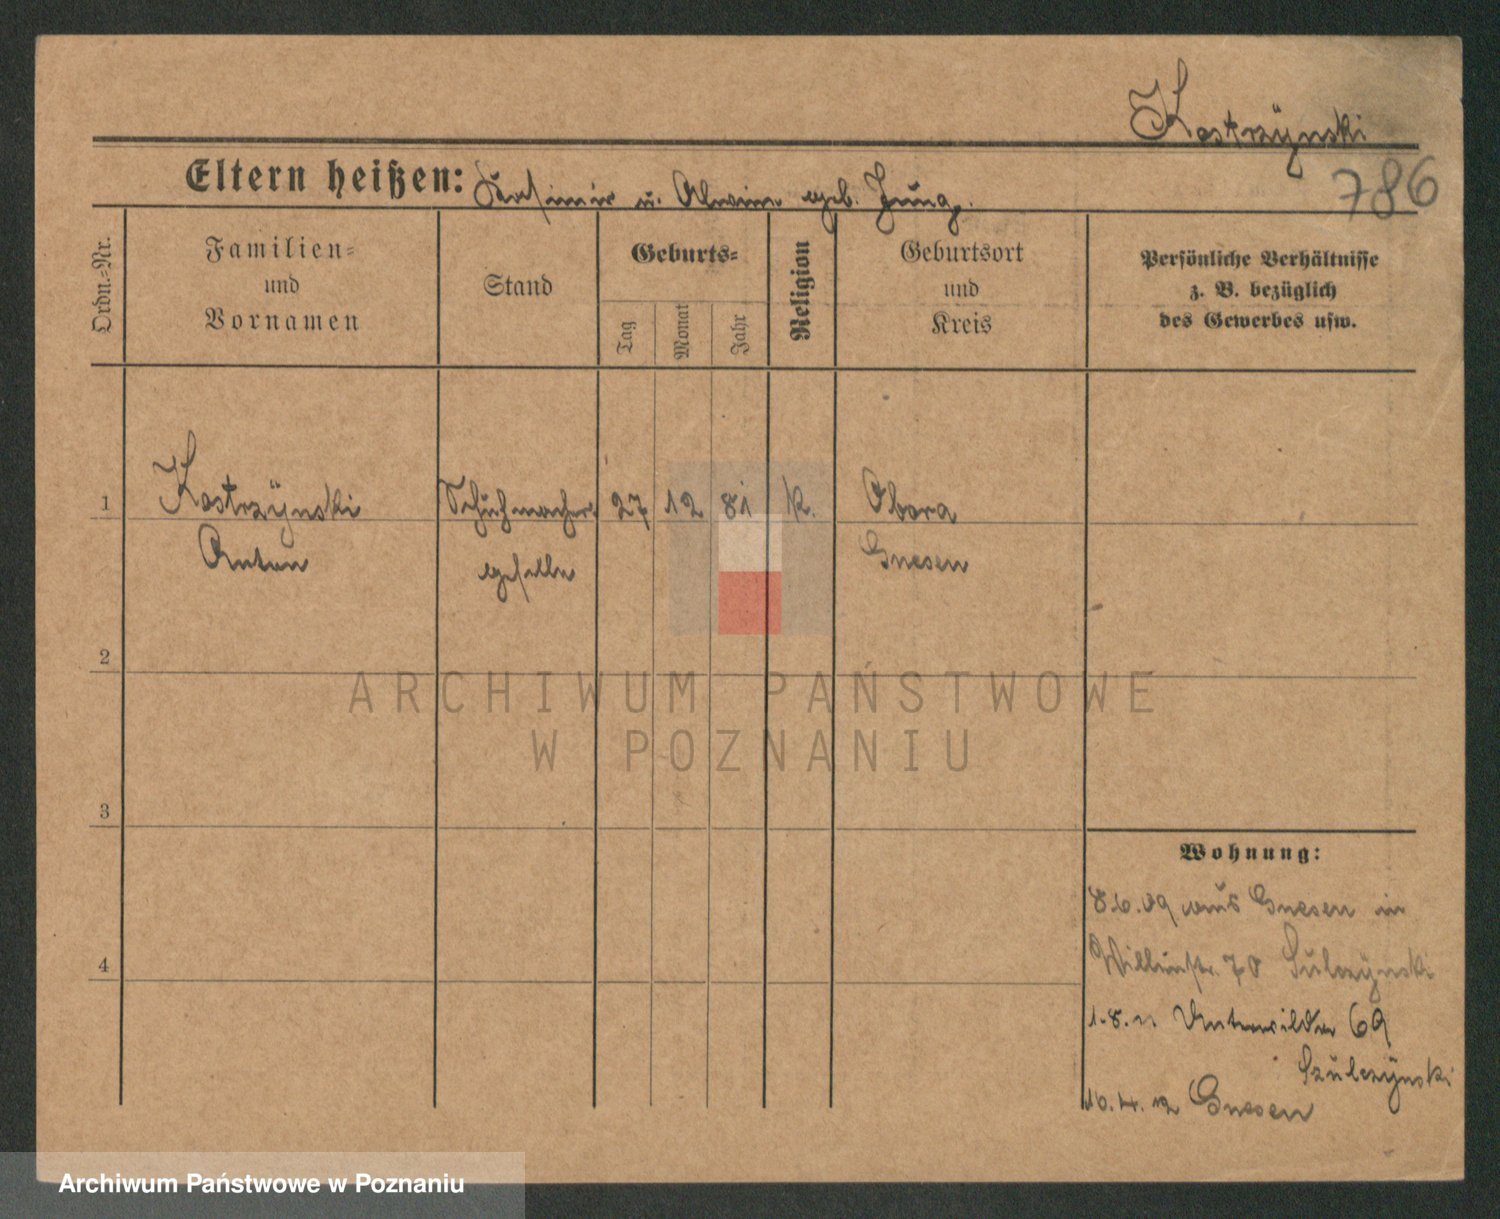 Kostrzÿnski
786
Eltern heißen: Kasimir u. Alwine geb. Jung.
Ordn.=Nr.
Familien=
und
Vornamen
Stand
Geburts=
Tag
Monat
Jahr
Religion
Geburtsort
und
Kreis
Persönliche Verhältnisse
z. B. bezüglich
des Gewerbes usw.
1 Kostrzÿnski Schuhmacher 27 12 81 k. Obora
Anton geselle Gnesen
2
3
4
ARCHIWUM PAŃSTWOWE
W POZNANIU
Wohnung:
8.6.09 aus Gnesen in
70 Sulczÿnski
1.8.11 Unterwilda 69
Szulczÿnski
10.4.12 Gnesen
Archiwum Państwowe w Poznaniu